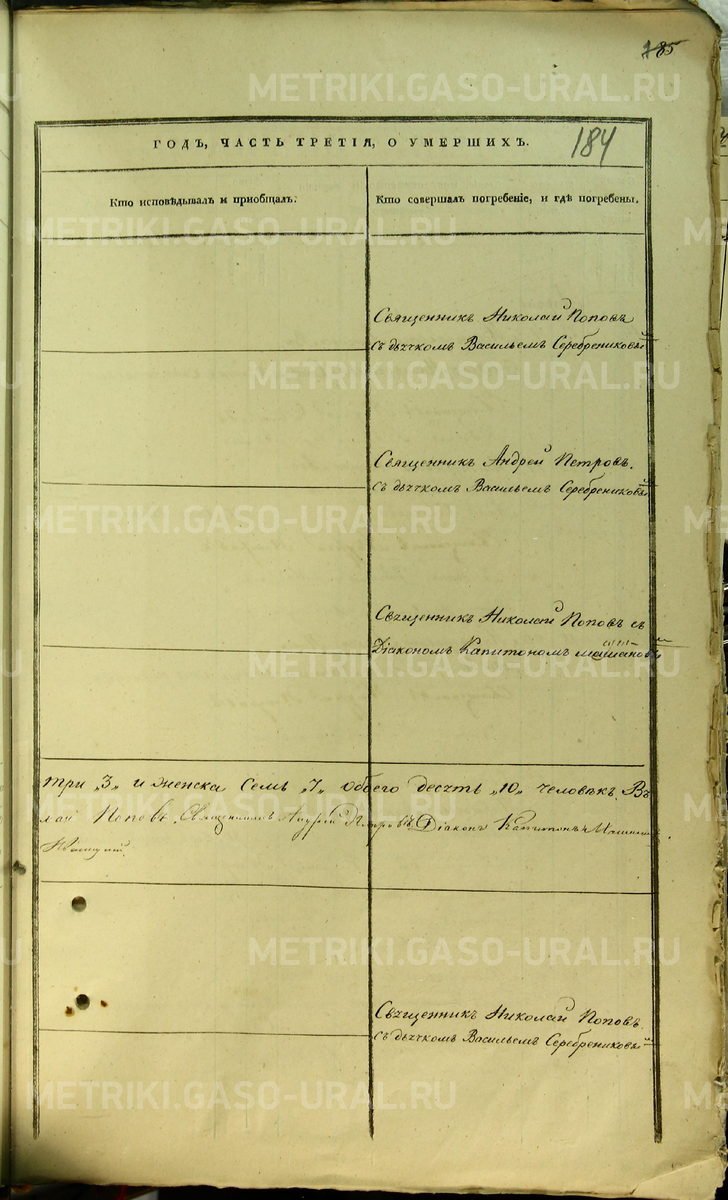 185
184
ГОДЪ, ЧАСТЬ ТРЕТІЯ, О УМЕРШИХЪ.
Кто исповѣдывалъ и пріобщалъ.
Кто совершалъ погребеніе, и гдѣ погребены.
Священникъ Николай Поповъ
съ дьячкомъ Васильемъ Серебрениковымъ
Священникъ Андрей Петровъ.
съ дьячкомъ Васильемъ Серебрениковымъ
Священникъ Николай Поповъ съ
Діакономъ Капитономъ
три „3„ и женска семь „7„ обоего десять „10„ человѣкъ. Въ
лай Поповъ Священникъ Андрей Петровъ Діаконъ Капитонъ
Священникъ Николай Поповъ.
съ дьячкомъ Васильемъ Серебрениковымъ
METRIKI.GASO-URAL.RU